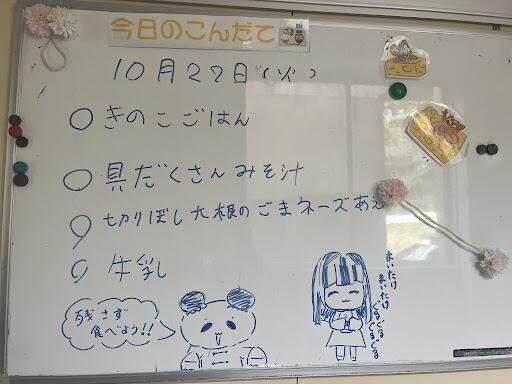 今日のこんだて
10月27日(火)
○きのこごはん
○具だくさんみそ汁
○切りぼし大根のごまネーズあえ
○牛乳
残さず
食べよう!!
まいたけ
まいたけ
ぐるぐる
ぐるぐる